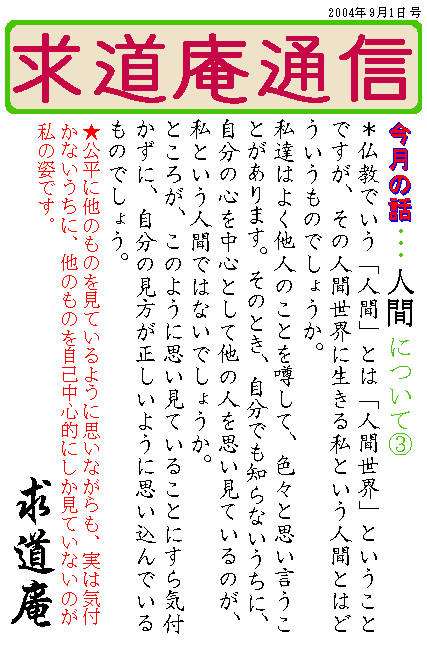 2004年9月1日号
求道庵通信
今月の話…人間について③
＊仏教でいう「人間」とは「人間世界」ということ
ですが、その人間世界に生きる私という人間とはど
ういうものでしょうか。
私達はよく他人のことを噂して、色々と思い言うこ
とがあります。そのとき、自分でも知らないうちに、
自分の心を中心として他の人を思い見ているのが、
私という人間ではないでしょうか。
ところが、このように思い見ていることにすら気付
かずに、自分の見方が正しいように思い込んでいる
ものでしょう。
★公平に他のものを見ているように思いながらも、実は気付
かないうちに、他のものを自己中心的にしか見ていないのが
私の姿です。
求道庵